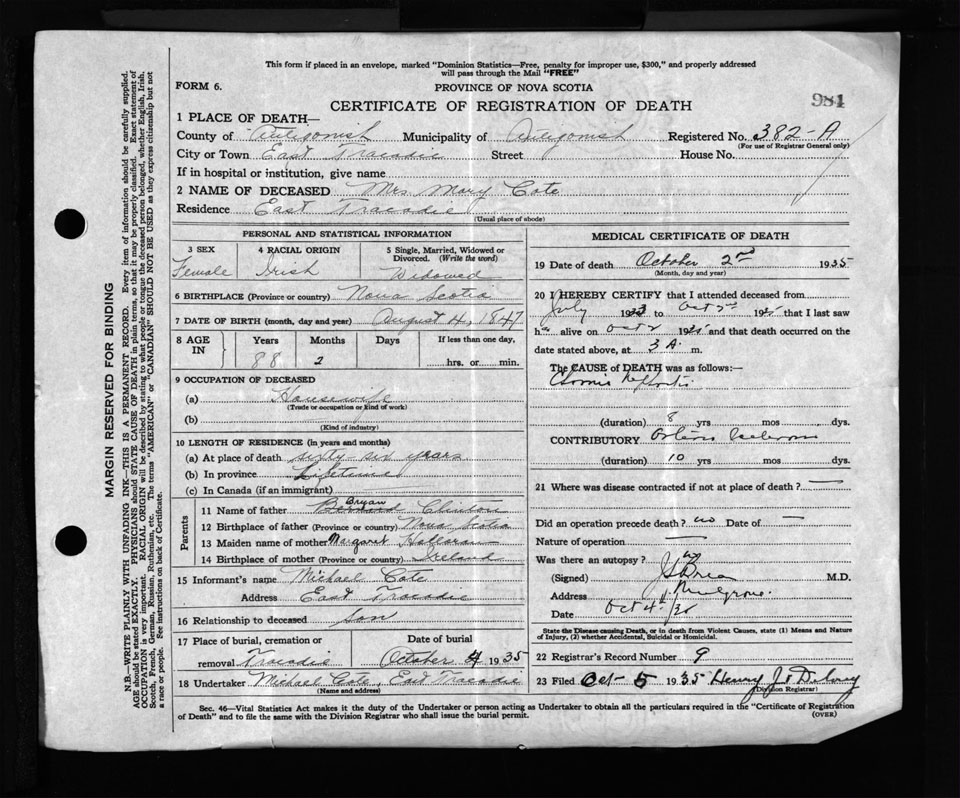 This form if placed in an envelope, marked "Dominion Statistics—Free, penalty for improper use, $300," and properly addressed
will pass through the Mail "FREE"
FORM 6.
PROVINCE OF NOVA SCOTIA
CERTIFICATE OF REGISTRATION OF DEATH
984
1 PLACE OF DEATH—
County of Antigonish Municipality of Antigonish Registered No. 382-A
(For use of Registrar General only)
City or Town East Tracadie Street House No.
If in hospital or institution, give name
2 NAME OF DECEASED Mrs. Mary Cote
Residence East Tracadie
(Usual place of abode)
PERSONAL AND STATISTICAL INFORMATION
3 SEX 4 RACIAL ORIGIN 5 Single, Married, Widowed or
Divorced. (Write the word)
Female Irish Widowed
6 BIRTHPLACE (Province or country) Nova Scotia
7 DATE OF BIRTH (month, day and year) August 4, 1847
8 AGE IN Years Months Days If less than one day,
88 2 hrs. or min.
9 OCCUPATION OF DECEASED
(a) Housewife
(Trade or occupation or kind of work)
(b)
(Kind of industry)
10 LENGTH OF RESIDENCE (in years and months)
(a) At place of death sixty-six years
(b) In province Lifetime
(c) In Canada (if an immigrant)
Parents
11 Name of father Bernard Bryan Clinton
12 Birthplace of father (Province or country) Nova Scotia
13 Maiden name of mother Margaret Halloran
14 Birthplace of mother (Province or country) Ireland
15 Informant's name Michael Cote
Address East Tracadie
16 Relationship to deceased Son
17 Place of burial, cremation or Date of burial
removal Tracadie October 4 1935
18 Undertaker Michael Cote, East Tracadie
(Name and address)
MEDICAL CERTIFICATE OF DEATH
19 Date of death October 2nd 1935
(Month, day and year)
20 I HEREBY CERTIFY that I attended deceased from
July 19 to Oct 2nd 1935 that I last saw
h alive on Oct 2 1935 and that death occurred on
date stated above, at 3 A. m.
The CAUSE of DEATH was as follows:—
Chronic Nephritis
(duration) 8 yrs mos dys.
CONTRIBUTORY
(duration) 10 yrs mos dys.
21 Where was disease contracted if not at place of death? —
Did an operation precede death? no Date of —
Nature of operation —
Was there an autopsy? no
(Signed) M.D.
Address
Date Oct 4th/35
State the Disease causing Death, or in death from Violent Causes, state (1) Means and Nature
of Injury, (2) whether Accidental, Suicidal or Homicidal.
22 Registrar's Record Number 9
23 Filed Oct- 5 1935 Henry J.
(Division Registrar)
Sec. 46—Vital Statistics Act makes it the duty of the Undertaker or person acting as Undertaker to obtain all the particulars required in the "Certificate of Registration
of Death" and to file the same with the Division Registrar who shall issue the burial permit.
(OVER)
MARGIN RESERVED FOR BINDING
N.B.—WRITE PLAINLY WITH UNFADING INK—THIS IS A PERMANENT RECORD. Every item of information should be carefully supplied.
AGE should be stated EXACTLY. PHYSICIANS should STATE CAUSE OF DEATH in plain terms, so that it may be properly classified. Exact statement of
OCCUPATION is very important. RACIAL ORIGIN will be described by stating to what people or tongue the deceased person belonged, whether English, Irish,
Scotch, French, German, Russian, Ruthenian, etc. The terms "AMERICAN" or "CANADIAN" SHOULD NOT BE USED as they express citizenship but not
a race or people. See instructions on back of Certificate.